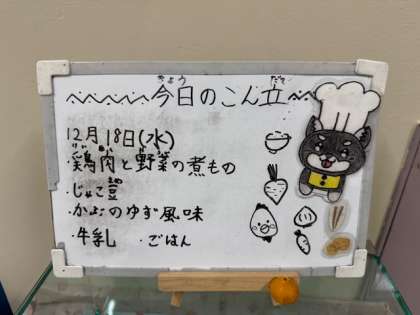 今日のこん立
12月18日(水)
・鶏肉と野菜の煮もの
・じゃこ豆
・かぶのゆず風味
・牛乳 ・ごはん